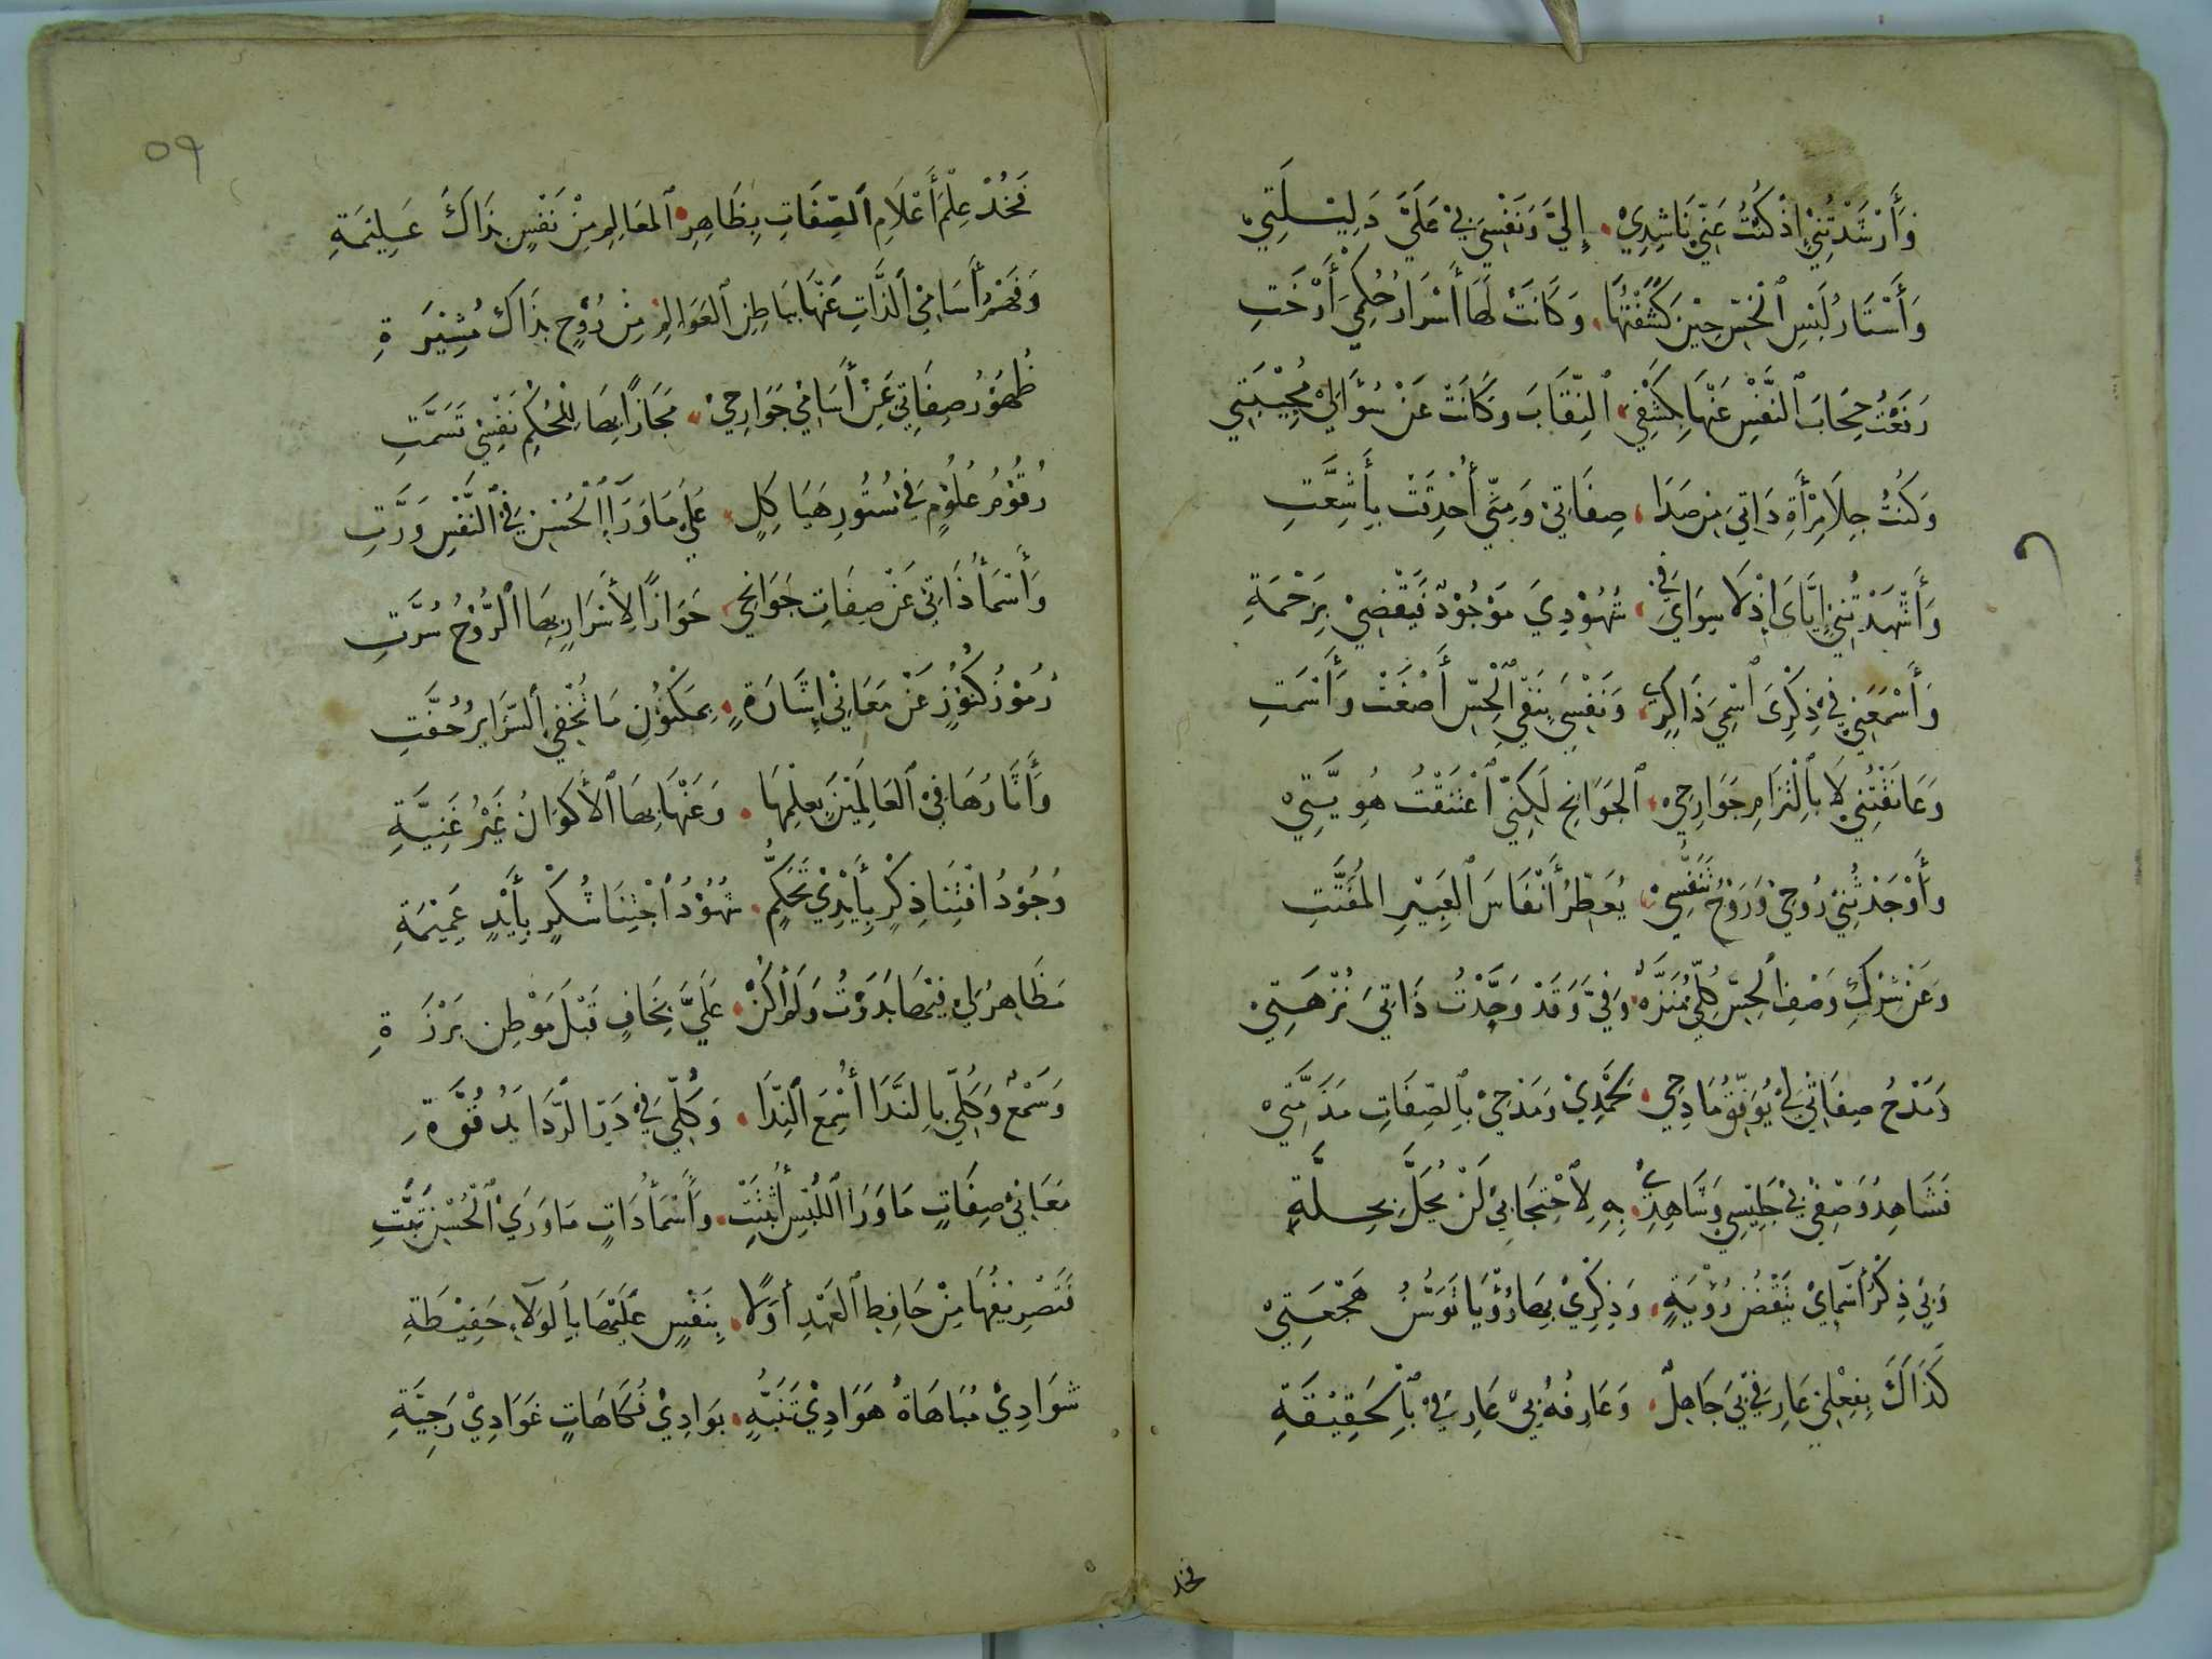 وَأَرْشَدْتُنِي إِذْ كُنْتُ عَنِّي نَاشِدِي إِلَيَّ وَنَفْسِي بِي عَلَيَّ دَلِيلَتِي
وَأَسْتَارُ لَبْسِ الْحِسِّ حِينَ كَشَفْتُهَا وَكَانَتْ لَهَا أَسْرَارُ حُكْمِي أَرْخَتِ
رَفَعْتُ حِجَابَ النَّفْسِ عَنْهَا بِكَشْفِيَ النِّقَابَ وَكَانَتْ عَنْ سُؤَالِي مُجِيبَتِي
وَكُنْتُ جِلَا مِرْأَةِ ذَاتِيَ مِن صَدَا صِفَاتِي وَمِنِّي أُحْدِقَتْ بِأَشِعَّتِ
وَأَشْهَدْتُنِي إِيَّايَ إِذْ لَا سِوَايَ فِي شُهُودِيَ مَوْجُودٌ فَيَقْضِي بِزَحْمَةِ
وَأَسْمَعَنِي فِي ذِكْرِيَ اسْمِيَ ذَاكِرِي وَنَفْسِيَ بِنَفْيِ الْحِسِّ أَصْغَتْ وَأَسْمَتِ
وَعَانَقْتُنِي لَا بِالْتِزَامِ جَوَارِحِي الْجَوَانِحَ لَكِنِّي اعْتَنَقْتُ هُوِيَّتِي
وَأَوْجَدْتُنِي رُوحِي وَرَوْحُ تَنَفُّسِي يُعَطِّرُ أَنْفَاسَ الْعَبِيرِ الْمُفَتَّتِ
وَعَنْ شِرْكِ وَصْفِ الْحِسِّ كُلِّي مُنَزَّهٌ وَفِيَّ وَقَدْ وَحَّدْتُ ذَاتِيَ نُزْهَتِي
وَمَدْحُ صِفَاتِي بِي يُوَفِّقُ مَادِحِي لِحَمْدِي وَمَدْحِي بِالصِّفَاتِ مَذَمَّتِي
فَشَاهِدُ وَصْفِي بِي جَلِيسِي وَشَاهِدِي بِهِ لِاحْتِجَابِي لَنْ يَحُلَّ بِحِلَّةِ
وَبِي ذِكْرُ أَسْمَايَ تَيَقُّظُ رُؤْيَةٍ وَذِكْرِي بِهَا رُؤْيَا تَوَسُّنُ هَجْعَتِي
كَذَاكَ بِفِعْلِي عَارِفِي بِيَ جَاهِلٌ وَعَارِفُهُ بِي عَارِفِي بِالْحَقِيقَةِ
فخذ
٥٩
فَخُذْ عِلْمَ أَعْلَامِ الصِّفَاتِ بِظَاهِرِ الْمَعَالِمِ مِنْ نَفْسٍ بِذَاكَ عَلِيمَةِ
وَفَهْمُ أَسَامِي الذَّاتِ عَنْهَا بِبَاطِنِ الْعَوَالِمِ مِنْ رُوحٍ بِذَاكَ مُشِيرَةِ
ظُهُورُ صِفَاتِي عَنْ أَسَامِي جَوَارِحِي مَجَازًا بِهَا لِلْحُكْمِ نَفْسِي تَسَمَّتِ
رُقُومُ عُلُومٍ فِي سُتُورِ هَيَاكِلٍ عَلَى مَا وَرَاءَ الْحُسْنِ فِي النَّفْسِ وَرَّتِ
وَأَسْمَاءُ ذَاتِي عَنْ صِفَاتِ جَوَانِحِي جَوَازًا لِأَسْرَارٍ بِهَا الرُّوحُ سُرَّتِ
رُمُوزُ كُنُوزٍ عَنْ مَعَانِي إِشَارَةٍ بِمَكْنُونِ مَا تُخْفِي السَّرَايِرُ حُفَّتِ
وَأَثَارُهَا فِي الْعَالَمِينَ بِعِلْمِهَا وَعَنْهَا بِهَا الْأَكْوَانُ غَيْرُ غَنِيَّةِ
وُجُودُ اقْتِنَا ذِكْرٍ بِأَيْدِي تَحَكُّمٍ شُهُودُ اجْتِنَا شُكْرٍ بِأَيْدٍ عَمِيمَةِ
مَظَاهِرُ لِي فِيهَا بَدَوْتُ وَلَمْ أَكُنْ عَلَيَّ بِخَافٍ قَبْلَ مَوْطِنِ بَرْزَةِ
وَسَمْعٌ وَكُلِّي بِالنَّدَا أَسْمَعُ النِّدَا وَكُلِّي فِي رَدِّ الرَّدَا يَدُ قُوَّةِ
مَعَانِي صِفَاتٍ مَا وَرَا اللُّبْسِ أُثْبِتَتْ وَأَسْمَاءُ ذَاتٍ مَا وَرَى الْحُسْنِ بَثَّتِ
فَتَصْرِيفُهَا مِنْ حَافِظِ الْعَهْدِ أَوَّلًا بِنَفْسٍ عَلَيْهَا بِالْوَلَاءِ حَفِيظَةِ
شَوَادِي مُبَاهَاةٍ هَوَادِي تَنَبُّهٍ بَوَادِي فُكَاهَاتٍ غَوَادِي رَجِيَّةِ